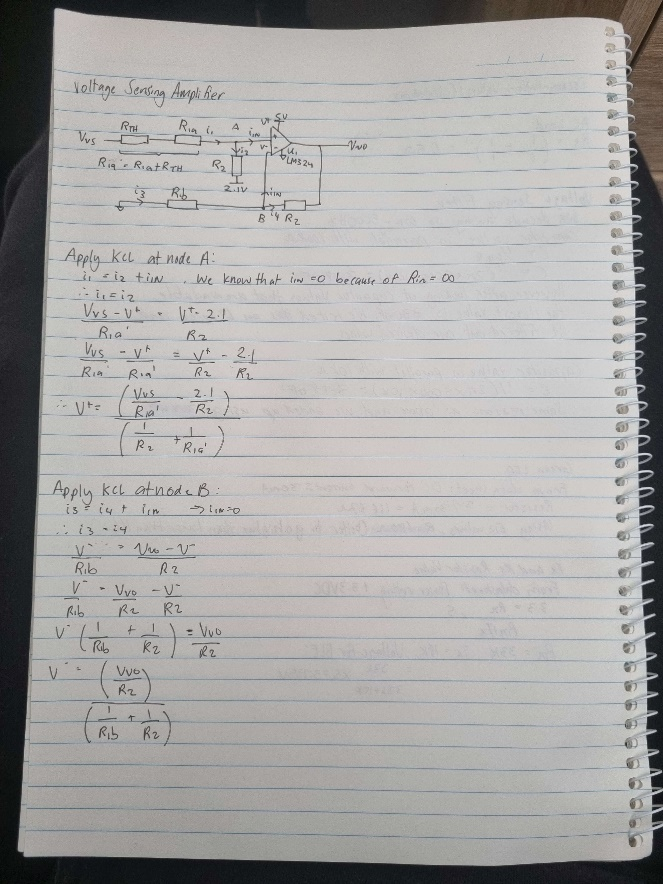 Voltage Sensing Amplifier
5V
V+
A
Vvs RTH R1a i1 iIN + Vvo
i2 V- - U1
R1a' = R1a + RTH R2 LM324
2.1V
i3 R1b iIN
B i4 R2
Apply KCL at node A:
i1 = i2 + iIN . We know that iIN = 0 because of Rin = ∞
∴ i1 = i2
(Vvs - V+)/R1a' = (V+ - 2.1)/R2
Vvs/R1a' - V+/R1a' = V+/R2 - 2.1/R2
∴ V+ = (Vvs/R1a' - 2.1/R2) / (1/R2 + 1/R1a')
Apply KCL at node B:
i3 = i4 + iIN → iIN = 0
∴ i3 = i4
V-/R1b = (Vvo - V-)/R2
V-/R1b = Vvo/R2 - V-/R2
V- (1/R1b + 1/R2) = Vvo/R2
V- = (Vvo/R2) / (1/R1b + 1/R2)